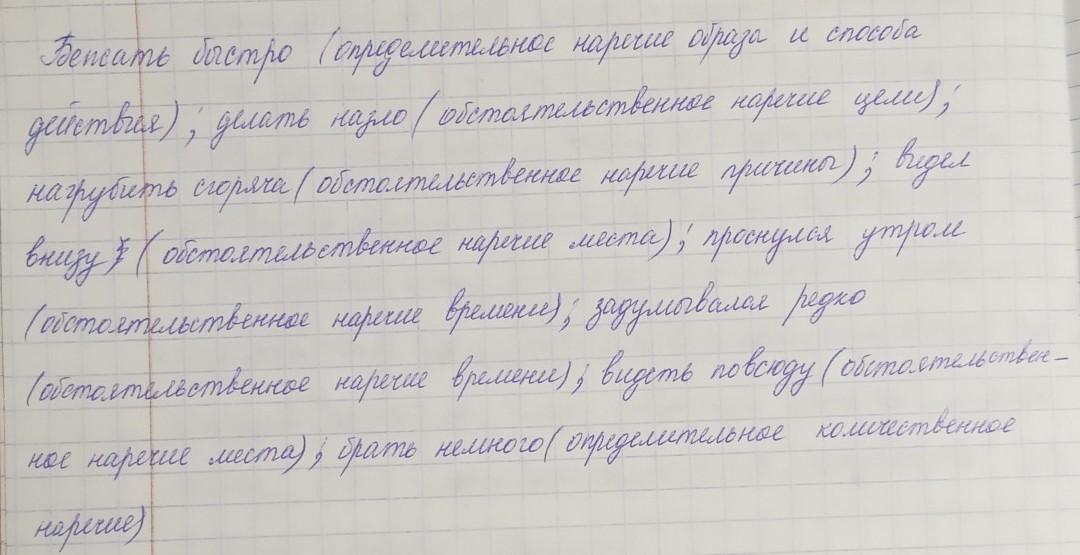 Бежать быстро (определительное наречие образа и способа
действия); делать назло (обстоятельственное наречие цели);
нагрубить сгоряча (обстоятельственное наречие причины); видел
внизу (обстоятельственное наречие места); проснулся утром
(обстоятельственное наречие времени); задумывался редко
(обстоятельственное наречие времени); видеть повсюду (обстоятельствен-
ное наречие места); брать немного (определительное количественное
наречие)